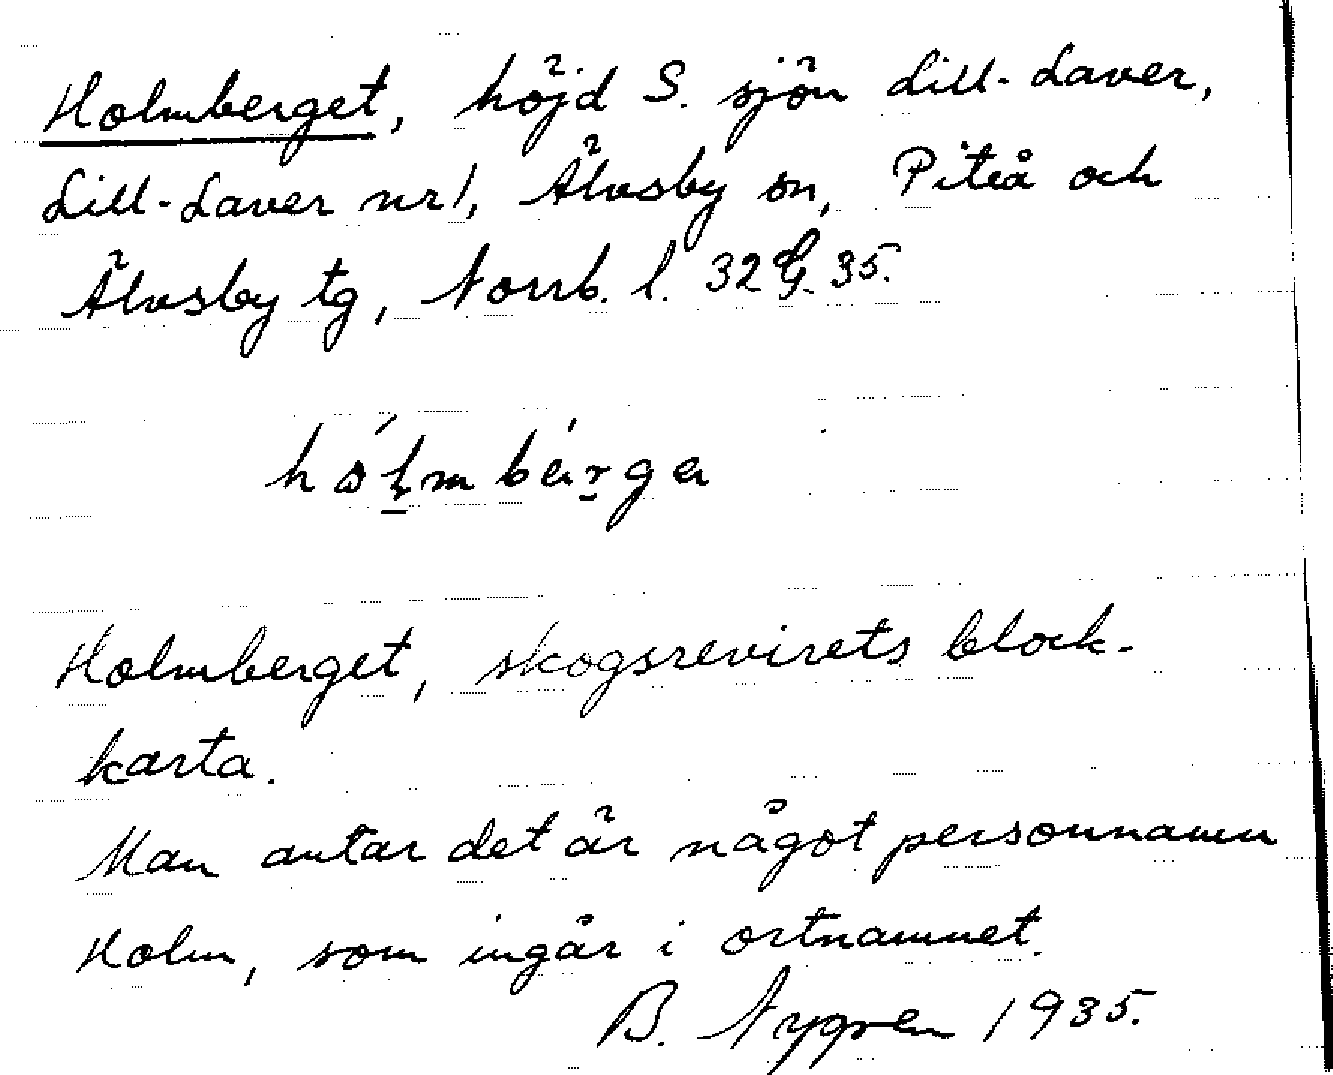 Holmberget, höjd S. sjön Lill-Laver,
Lill-Laver nr 1, Älvsby sn, Piteå och
Älvsby tg, Norrb. l. 32 G. 35.
hó̀l̠mbär̠ga
Holmberget, skogsrevirets block-
karta.
Man antar det är något personnamn
Holm, som ingår i ortnamnet.
B. Nygren 1935.